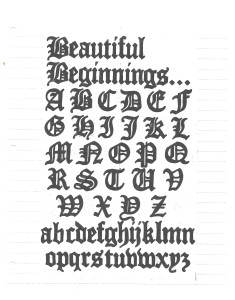 Beautiful
Beginnings...
A B C D E F
G H I J K L
M N O P Q
R S T U V
W X Y Z
abcdefghijklmn
opqrstuvwxyz